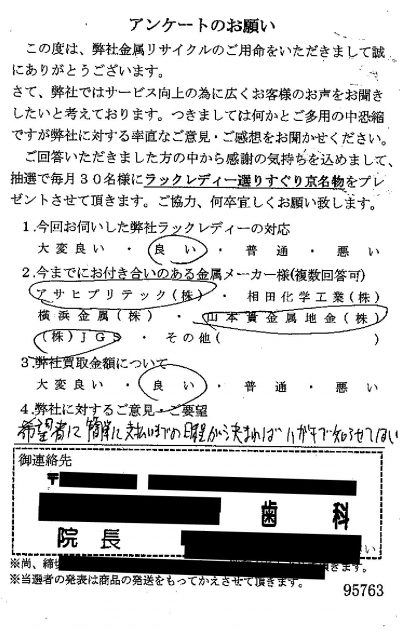 アンケートのお願い
この度は、弊社金属リサイクルのご用命をいただきまして誠
にありがとうございます。
さて、弊社ではサービス向上の為に広くお客様のお声をお聞き
したいと考えております。つきましては何かとご多用の中恐縮
ですが弊社に対する率直なご意見・ご感想をお聞かせください。
ご回答いただきました方の中から感謝の気持ちを込めまして、
抽選で毎月30名様にラックレディー選りすぐり京名物をプレ
ゼントさせて頂きます。ご協力、何卒宜しくお願い致します。
1.今回お伺いした弊社ラックレディーの対応
大変良い ・ 良い ・ 普通 ・ 悪い
2.今までにお付き合いのある金属メーカー様(複数回答可)
アサヒプリテック(株) ・ 相田化学工業(株)
横浜金属(株) ・ 山本貴金属地金(株)
(株)JGS ・ その他( )
3.弊社買取金額について
大変良い ・ 良い ・ 普通 ・ 悪い
4.弊社に対するご意見・ご要望
希望者に簡単に支払いまでの日程が決まれば ハガキで知らせてほしい
御連絡先
〒
歯 科
院 長
さい)
※尚、締切 頂きます。
※当選者の発表は商品の発送をもってかえさせて頂きます。
95763